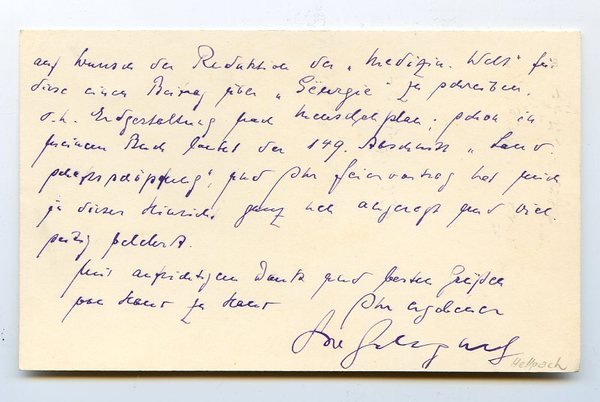 auf Wunsch der Redaktion der „Medizin. Welt" für
diese einen Beitrag über „Géurgie" zu schreiben,
d.h. Erdgestaltung nach Menschenplan; schon in
meinem Buch lautet der 149. Abschnitt „Land-
schaftsschöpfung", und Ihr Feiervortrag hat mich
in dieser Hinsicht ganz neu angeregt und viel-
seitig belehrt.
Mit aufrichtigem Dank und besten Grüßen
von Haus zu Haus Ihr ergebener
Hellpach